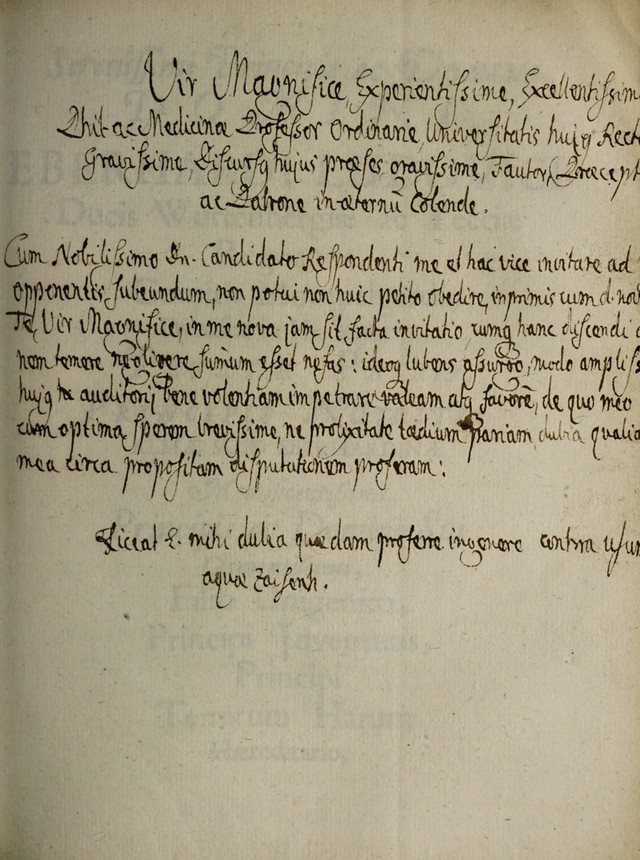 Vir Magnifice, Experientissime, Excellentissim
Phil. ac Medicinæ Professor Ordinarie, Universitatis hujq Rect
Gravissime, Discursq hujus præses gravissime, Fautor, Præcept
ac Patrone in æternū Colende.
Cum Nobilissimo Dn. Candidato Respondenti me et hac vice invitare ad
opponentis subeundum, non potui non huic petito obedire, inprimis cum d. no
Te, Vir Magnifice, in me nova jam sit facta invitatio cumq hanc discendi
nem temere negligere sumum esset nefas: ideoq lubens assurgo, modo ampliss
hujq auditorij bene volentiam impetrare valeam atq favorē, de quo meo
cum optima sperem brevissime, ne prolixitate tædium pariam, dubia qualia
mea circa propositam disputationem proferam:
Liceat E. mihi dubia quædam proferre in genere contra usum
aquæ Zaisenh.
Ducis W
Principi Juventutis,
Principi
Terrarum Harum
Hæreditario,